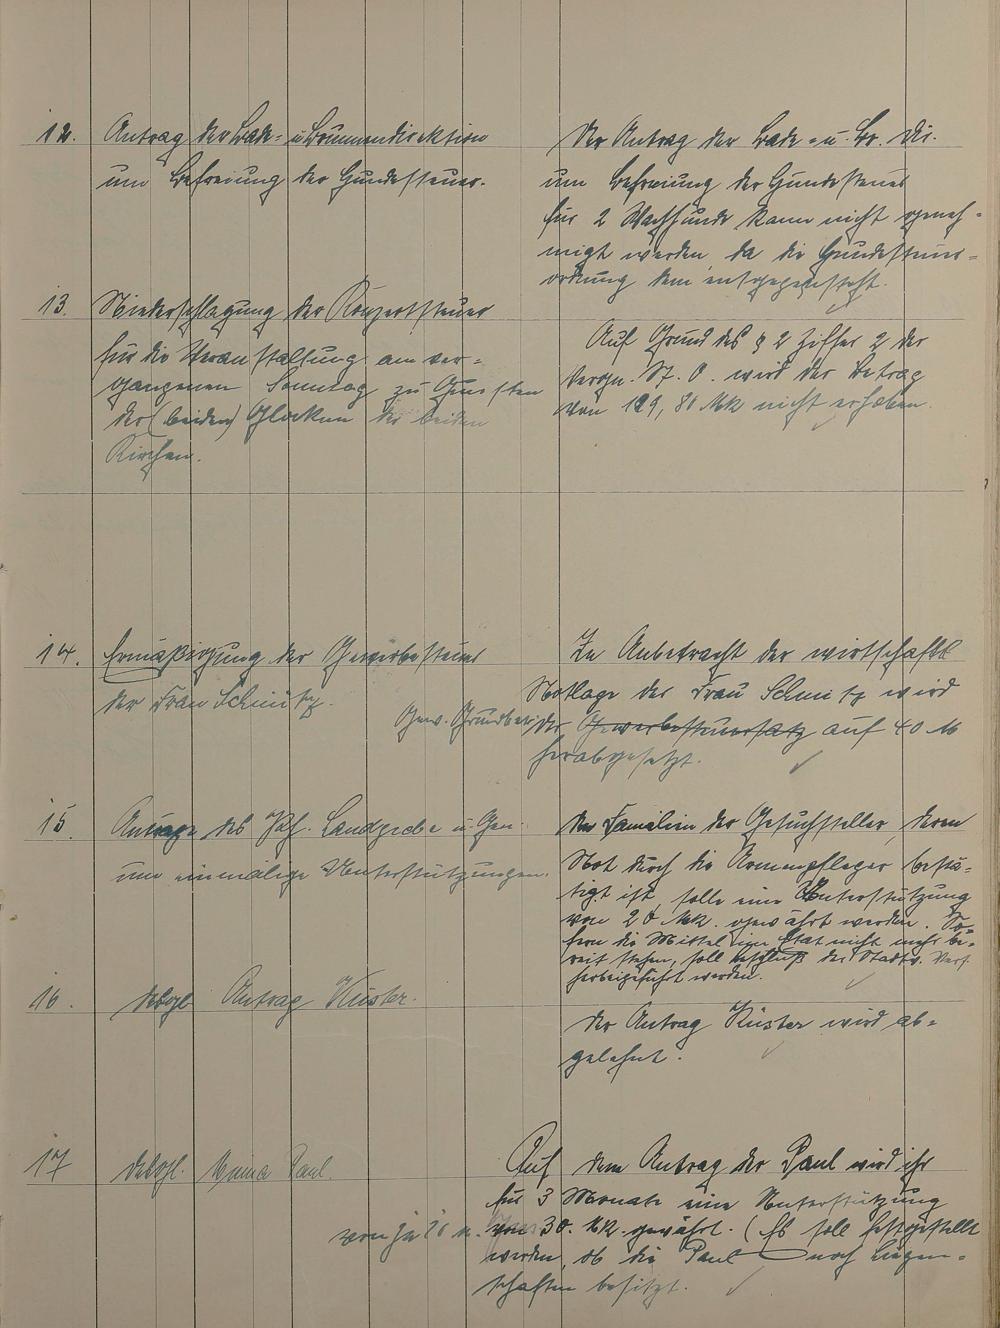 12.
Antrag der Bade- u. Brunnendirektion
um Befreiung der Hundesteuer.
Der Antrag der Bade- u. Br. Dir.
um Befreiung der Hundesteuer
für 2 Wachhunde kann nicht geneh-
migt werden da die Hundesteuer-
ordnung dem entgegensteht.
13.
Niederschlagung der Konzertsteuer
für die Veranstaltung am ver-
gangenen Sonntag zu Gunsten
der (beiden) Glocken der beiden
Kirchen.
Auf Grund des § 2 Ziffer 2 der
Vergn. St. O. wird der Betrag
von 129,80 Mk nicht erhoben.
14.
Ermäßigung der Gewerbesteuer
der Frau Schmitz.
In Anbetracht der wirtschaftl.
Notlage der Frau Schmitz wird
Gew. Grundbetr. der Gewerbesteuersatz auf 40 M
herabgesetzt.
15.
Anträge des Landgrebe u. Gen.
um einmalige Unterstützungen.
Den Familien der Gesuchsteller, deren
Not durch die Armenpfleger bestä-
tigt ist, solle eine Unterstützung
von 20 Mk. gewährt werden. So-
fern die Mittel im Etat nicht mehr be-
reit stehen, soll Beschluß der Stadtv. Vers.
herbeigeführt werden.
16.
desgl. Antrag Küster.
Der Antrag Küster wird ab-
gelehnt.
17
desgl. Paul.
Auf den Antrag der Paul wird ihr
für 3 Monate eine Unterstützung
von je 20 M. von 30. Mk. gewährt. (Es soll festgestellt
werden, ob die Paul noch Liegen-
schaften besitzt.